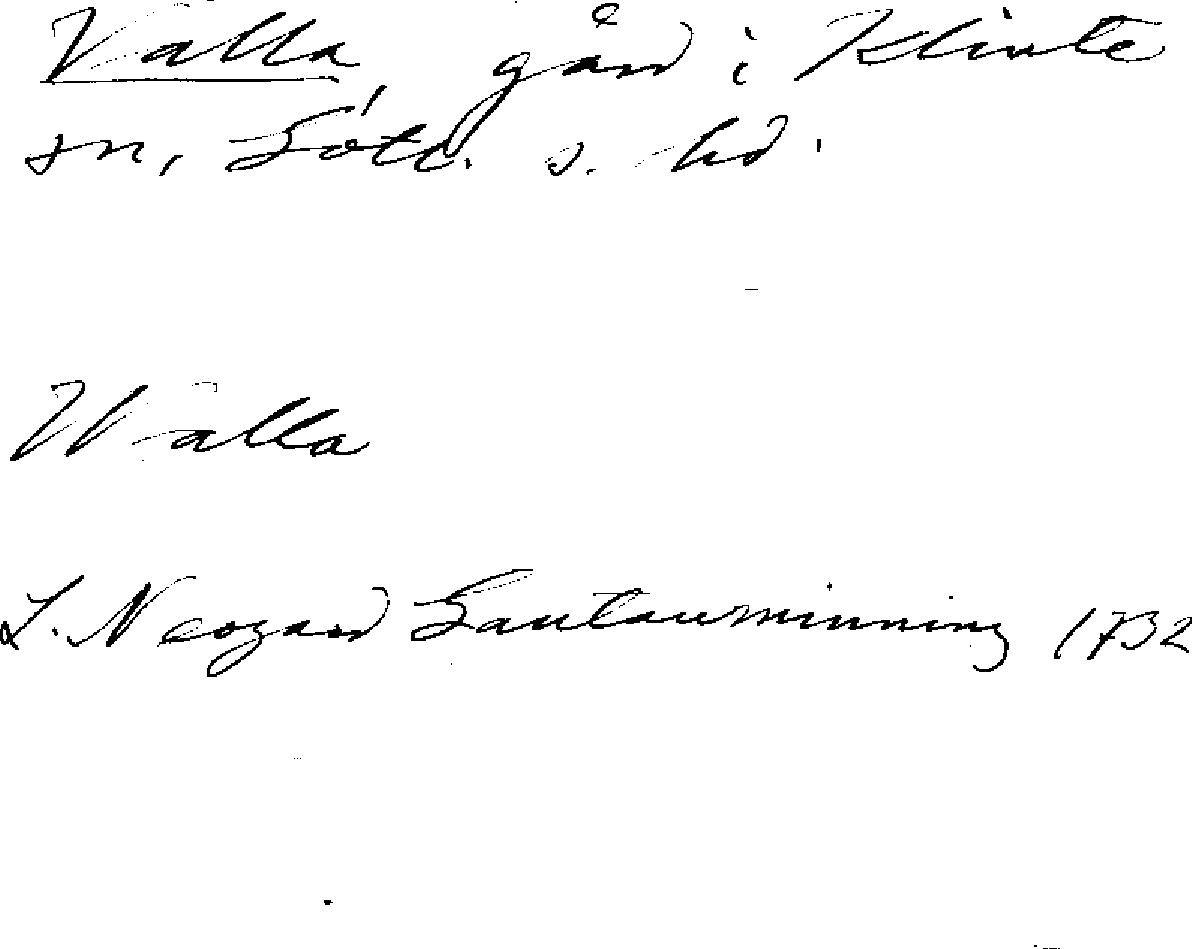 Valla, gård i Klinte
sn, Gotl. s. hd.
Walla
L. Neogard Gautauminning 1732